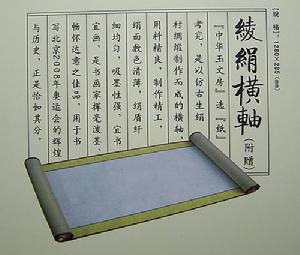 【规格】：1280×295(mm)
綾絹横軸（附赠）
『中华玉文房』选『纸』
考究，是以仿古生绢
衬绸缎制作而成的横轴，
用料精良，制作精工，
绢面敷色清薄，绢质纤
细均匀，吸墨性强，宜书
宜画，是书画家挥毫泼墨、
畅怀达意之佳品，用于书
写北京2008年奥运会的辉煌
与历史，正是恰如其分。